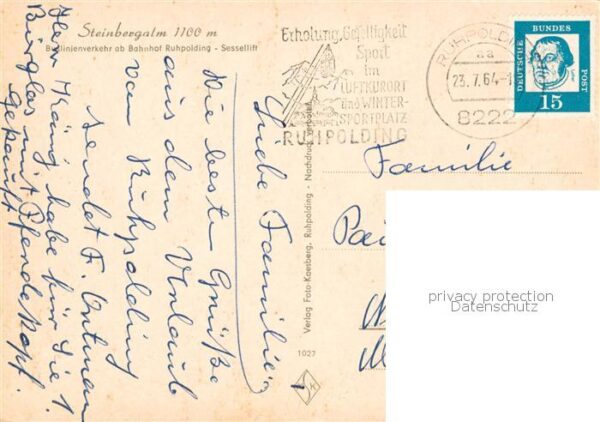 Steinbergalm 1100 m
Buslinienverkehr ab Bahnhof Ruhpolding - Sessellift
Erholung, Geselligkeit
Sport
im
LUFTKURORT
und WINTER-
SPORTPLATZ
RUHPOLDING
RUHPOLDING
aa
23.7.64-1
8222
DEUTSCHE
BUNDES
POST
15
Liebe Familie
Die besten Grüße
aus dem Urlaub
von Ruhpolding
sendet F.
Herr habe für Sie 1.
Bürglas mit Pferdekopf
gekauft
Verlag Foto-Kaesberg, Ruhpolding - Nachdruck verboten
1027
Familie
privacy protection
Datenschutz